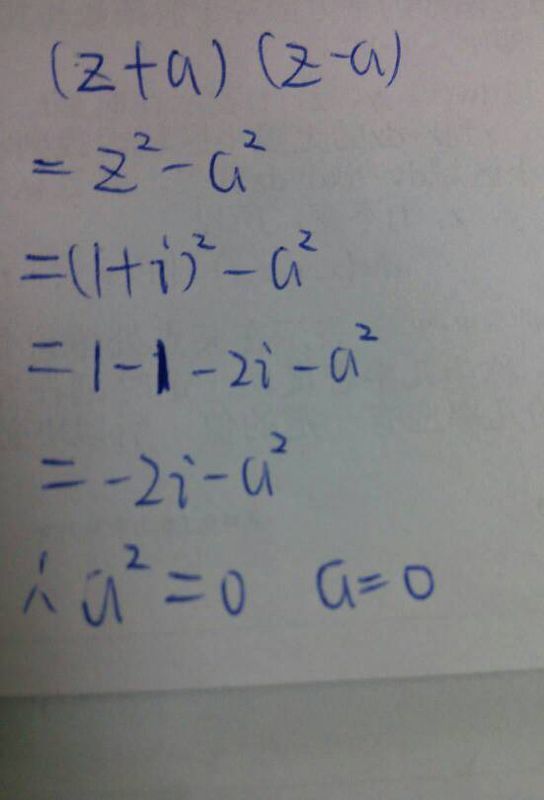 (z+a) (z-a)
= z² - a²
=(1+i)² - a²
= 1-1-2i-a²
= -2i-a²
∴ a² = 0 a = 0